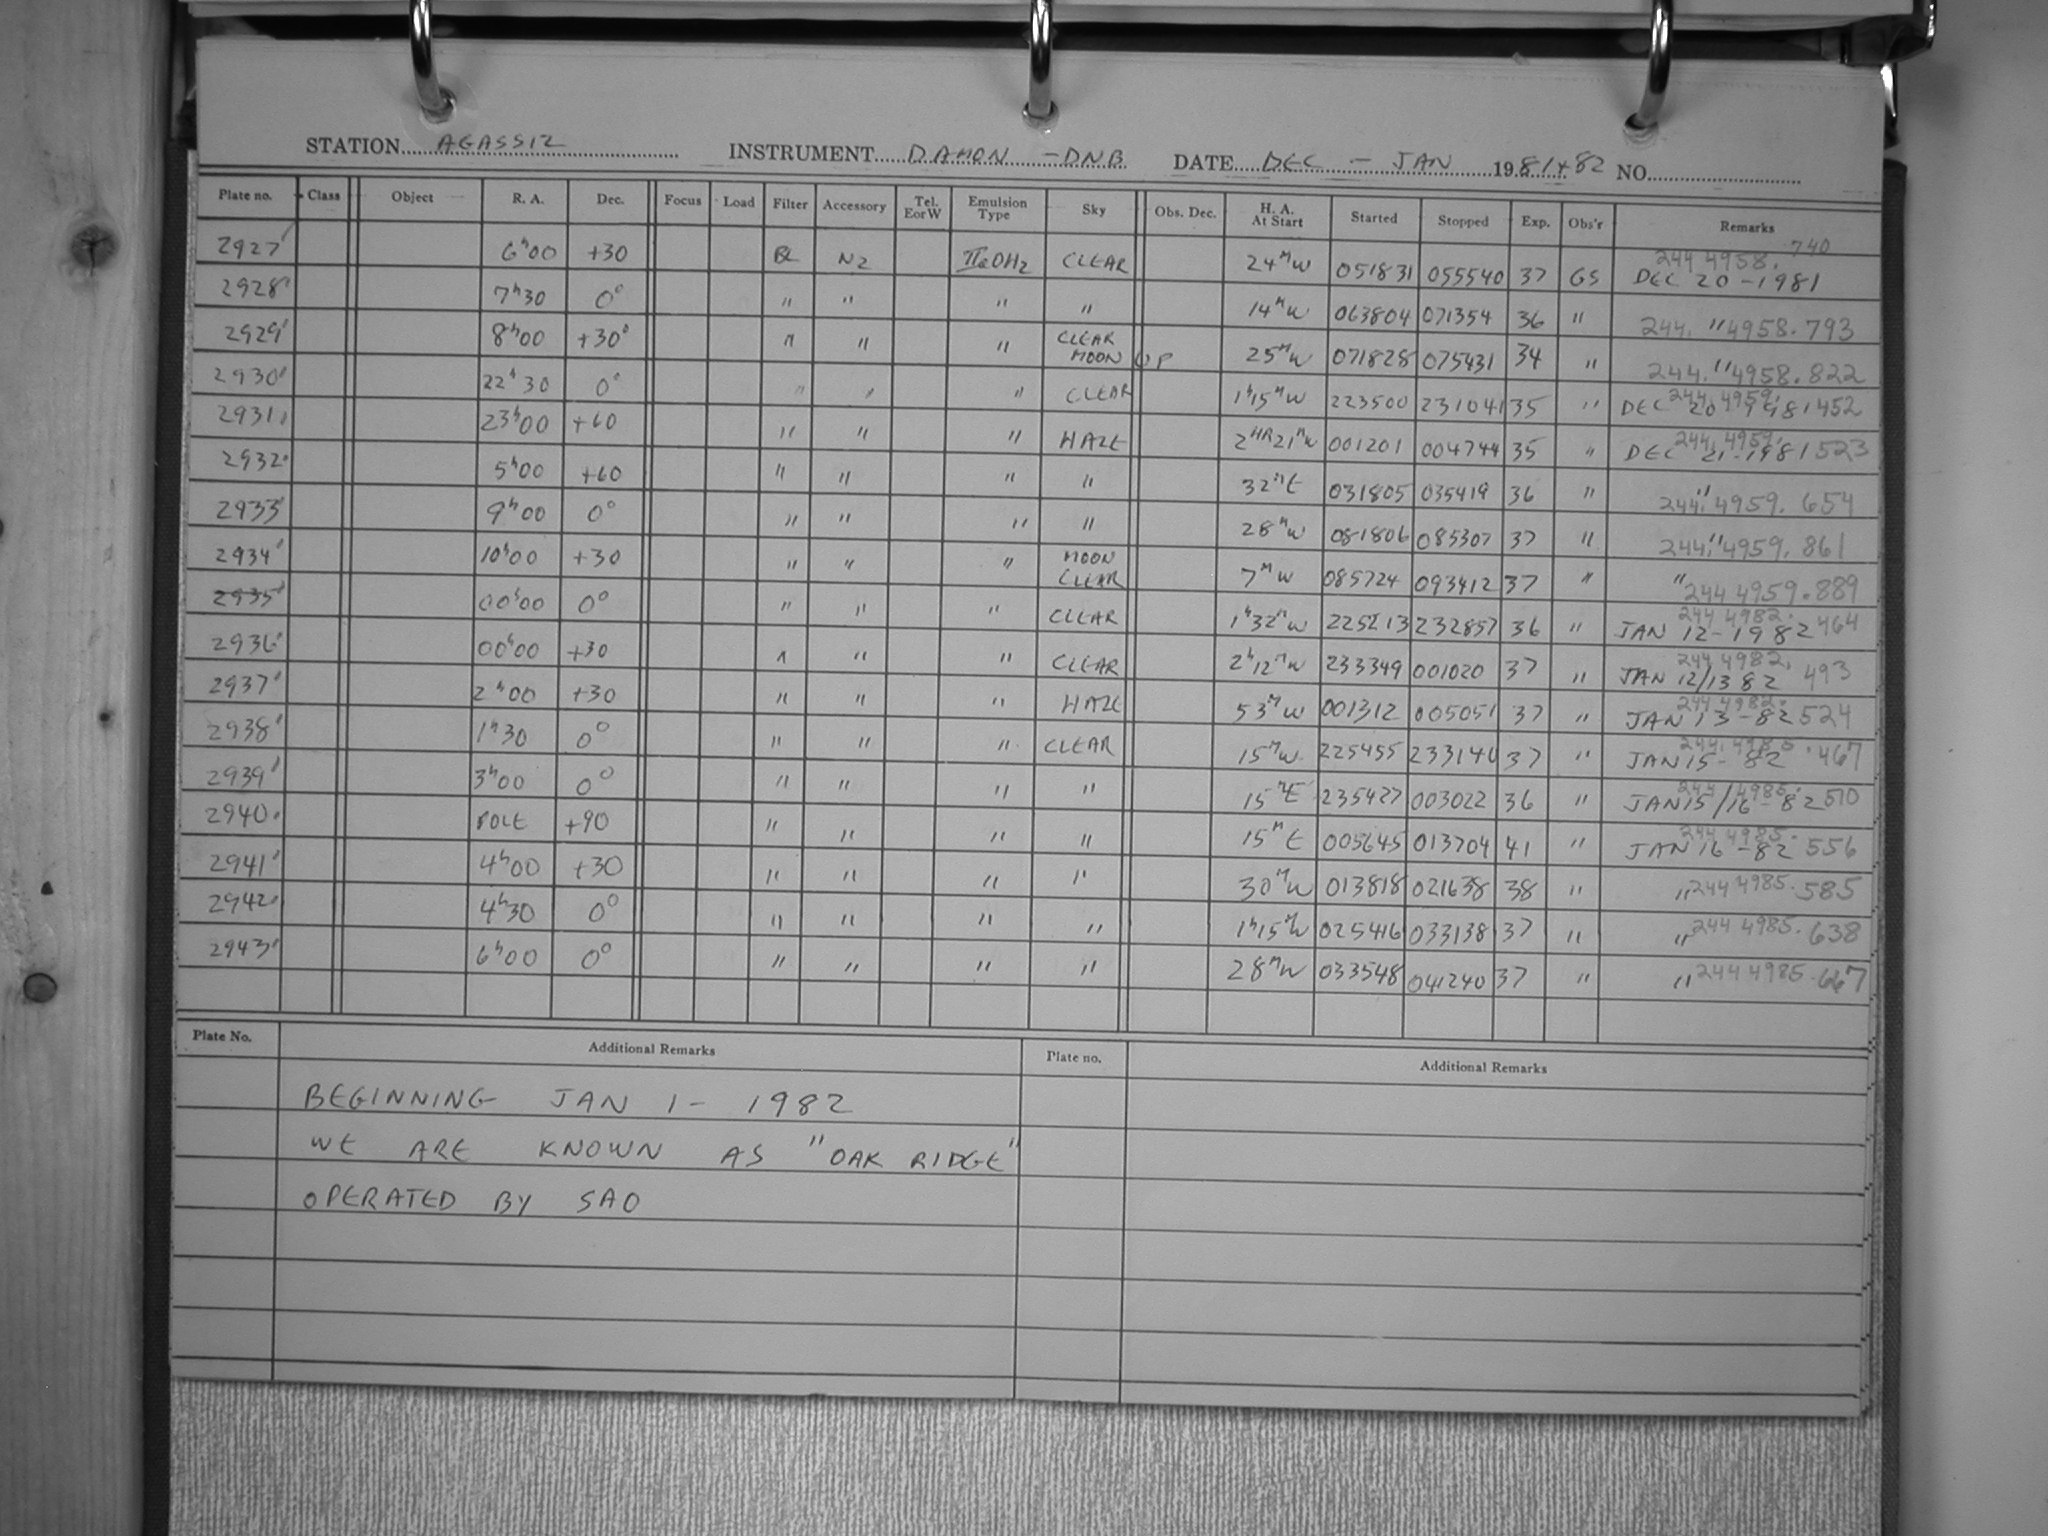 STATION AGASSIZ INSTRUMENT DAMON - DNB DATE DEC - JAN 1981+82 NO.
Plate no. Class Object R. A. Dec. Focus Load Filter Accessory Tel. E or W Emulsion Type Sky Obs. Dec. H. A. At Start Started Stopped Exp. Obs'r Remarks
2927 6h00 +30 BL N2 IIaOH2 CLEAR 24MW 051831 055540 37 GS 244 4958.740 DEC 20-1981
2928 7h30 0° " " " " 14MW 063804 071354 36 " 244. " 4958.793
2929 8h00 +30° " " " CLEAR MOON UP 25MW 071828 075431 34 " 244. " 4958.822
2930 22h30 0° " " " CLEAR 1h15MW 223500 231041 35 " 244. 4959. DEC 20 1981 452
2931 23h00 +60 " " " HAZE 2HR21MW 001201 004744 35 " 244. 4959. DEC 21-1981 523
2932 5h00 +60 " " " " 32ME 031805 035419 36 " " 244. 4959. 654
2933 9h00 0° " " " " 28MW 081806 085307 37 " 244. " 4959. 861
2934 10h00 +30 " " " MOON CLEAR 7MW 085724 093412 37 " " 244 4959.889
2935 00h00 0° " " " CLEAR 1h32MW 225213 232857 36 " 244 4982. JAN 12-1982 464
2936 00h00 +30 " " " CLEAR 2h12MW 233349 001020 37 " 244 4982. JAN 12/13 82 493
2937 2h00 +30 " " " HAZE 53MW 001312 005051 37 " 244 4982. JAN 13-82 524
2938 1h30 0° " " " CLEAR 15MW 225455 233140 37 " 244. 4985 JAN 15-82 .467
2939 3h00 0° " " " " 15ME 235427 003022 36 " 244 4985. JAN 15/16-82 510
2940 POLE +90 " " " " 15ME 005645 013704 41 " 244 4985. JAN 16-82 556
2941 4h00 +30 " " " " 30MW 013818 021638 38 " " 244 4985.585
2942 4h30 0° " " " " 1h15MW 025416 033138 37 " " 244 4985.638
2943 6h00 0° " " " " 28MW 033548 041240 37 " " 244 4985.667
Plate No. Additional Remarks Plate no. Additional Remarks
BEGINNING JAN 1- 1982
WE ARE KNOWN AS "OAK RIDGE"
OPERATED BY SAO